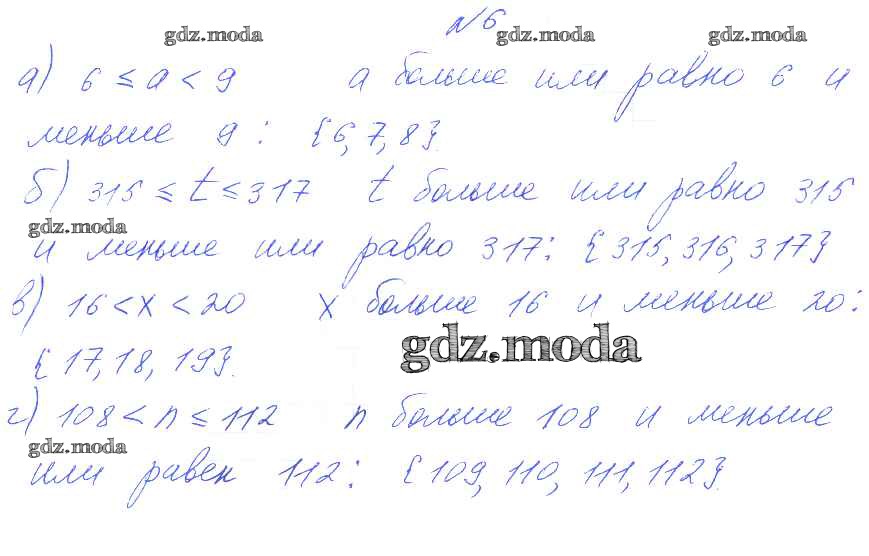 №6
gdz.moda gdz.moda gdz.moda
а) 6 ≤ a < 9 a больше или равно 6 и
меньше 9: {6, 7, 8}.
б) 315 ≤ t ≤ 317 t больше или равно 315
gdz.moda
и меньше или равно 317: {315, 316, 317}
в) 16 < x < 20 x больше 16 и меньше 20:
gdz.moda
{17, 18, 19}.
г) 108 < n ≤ 112 n больше 108 и меньше
gdz.moda
или равен 112: {109, 110, 111, 112}.